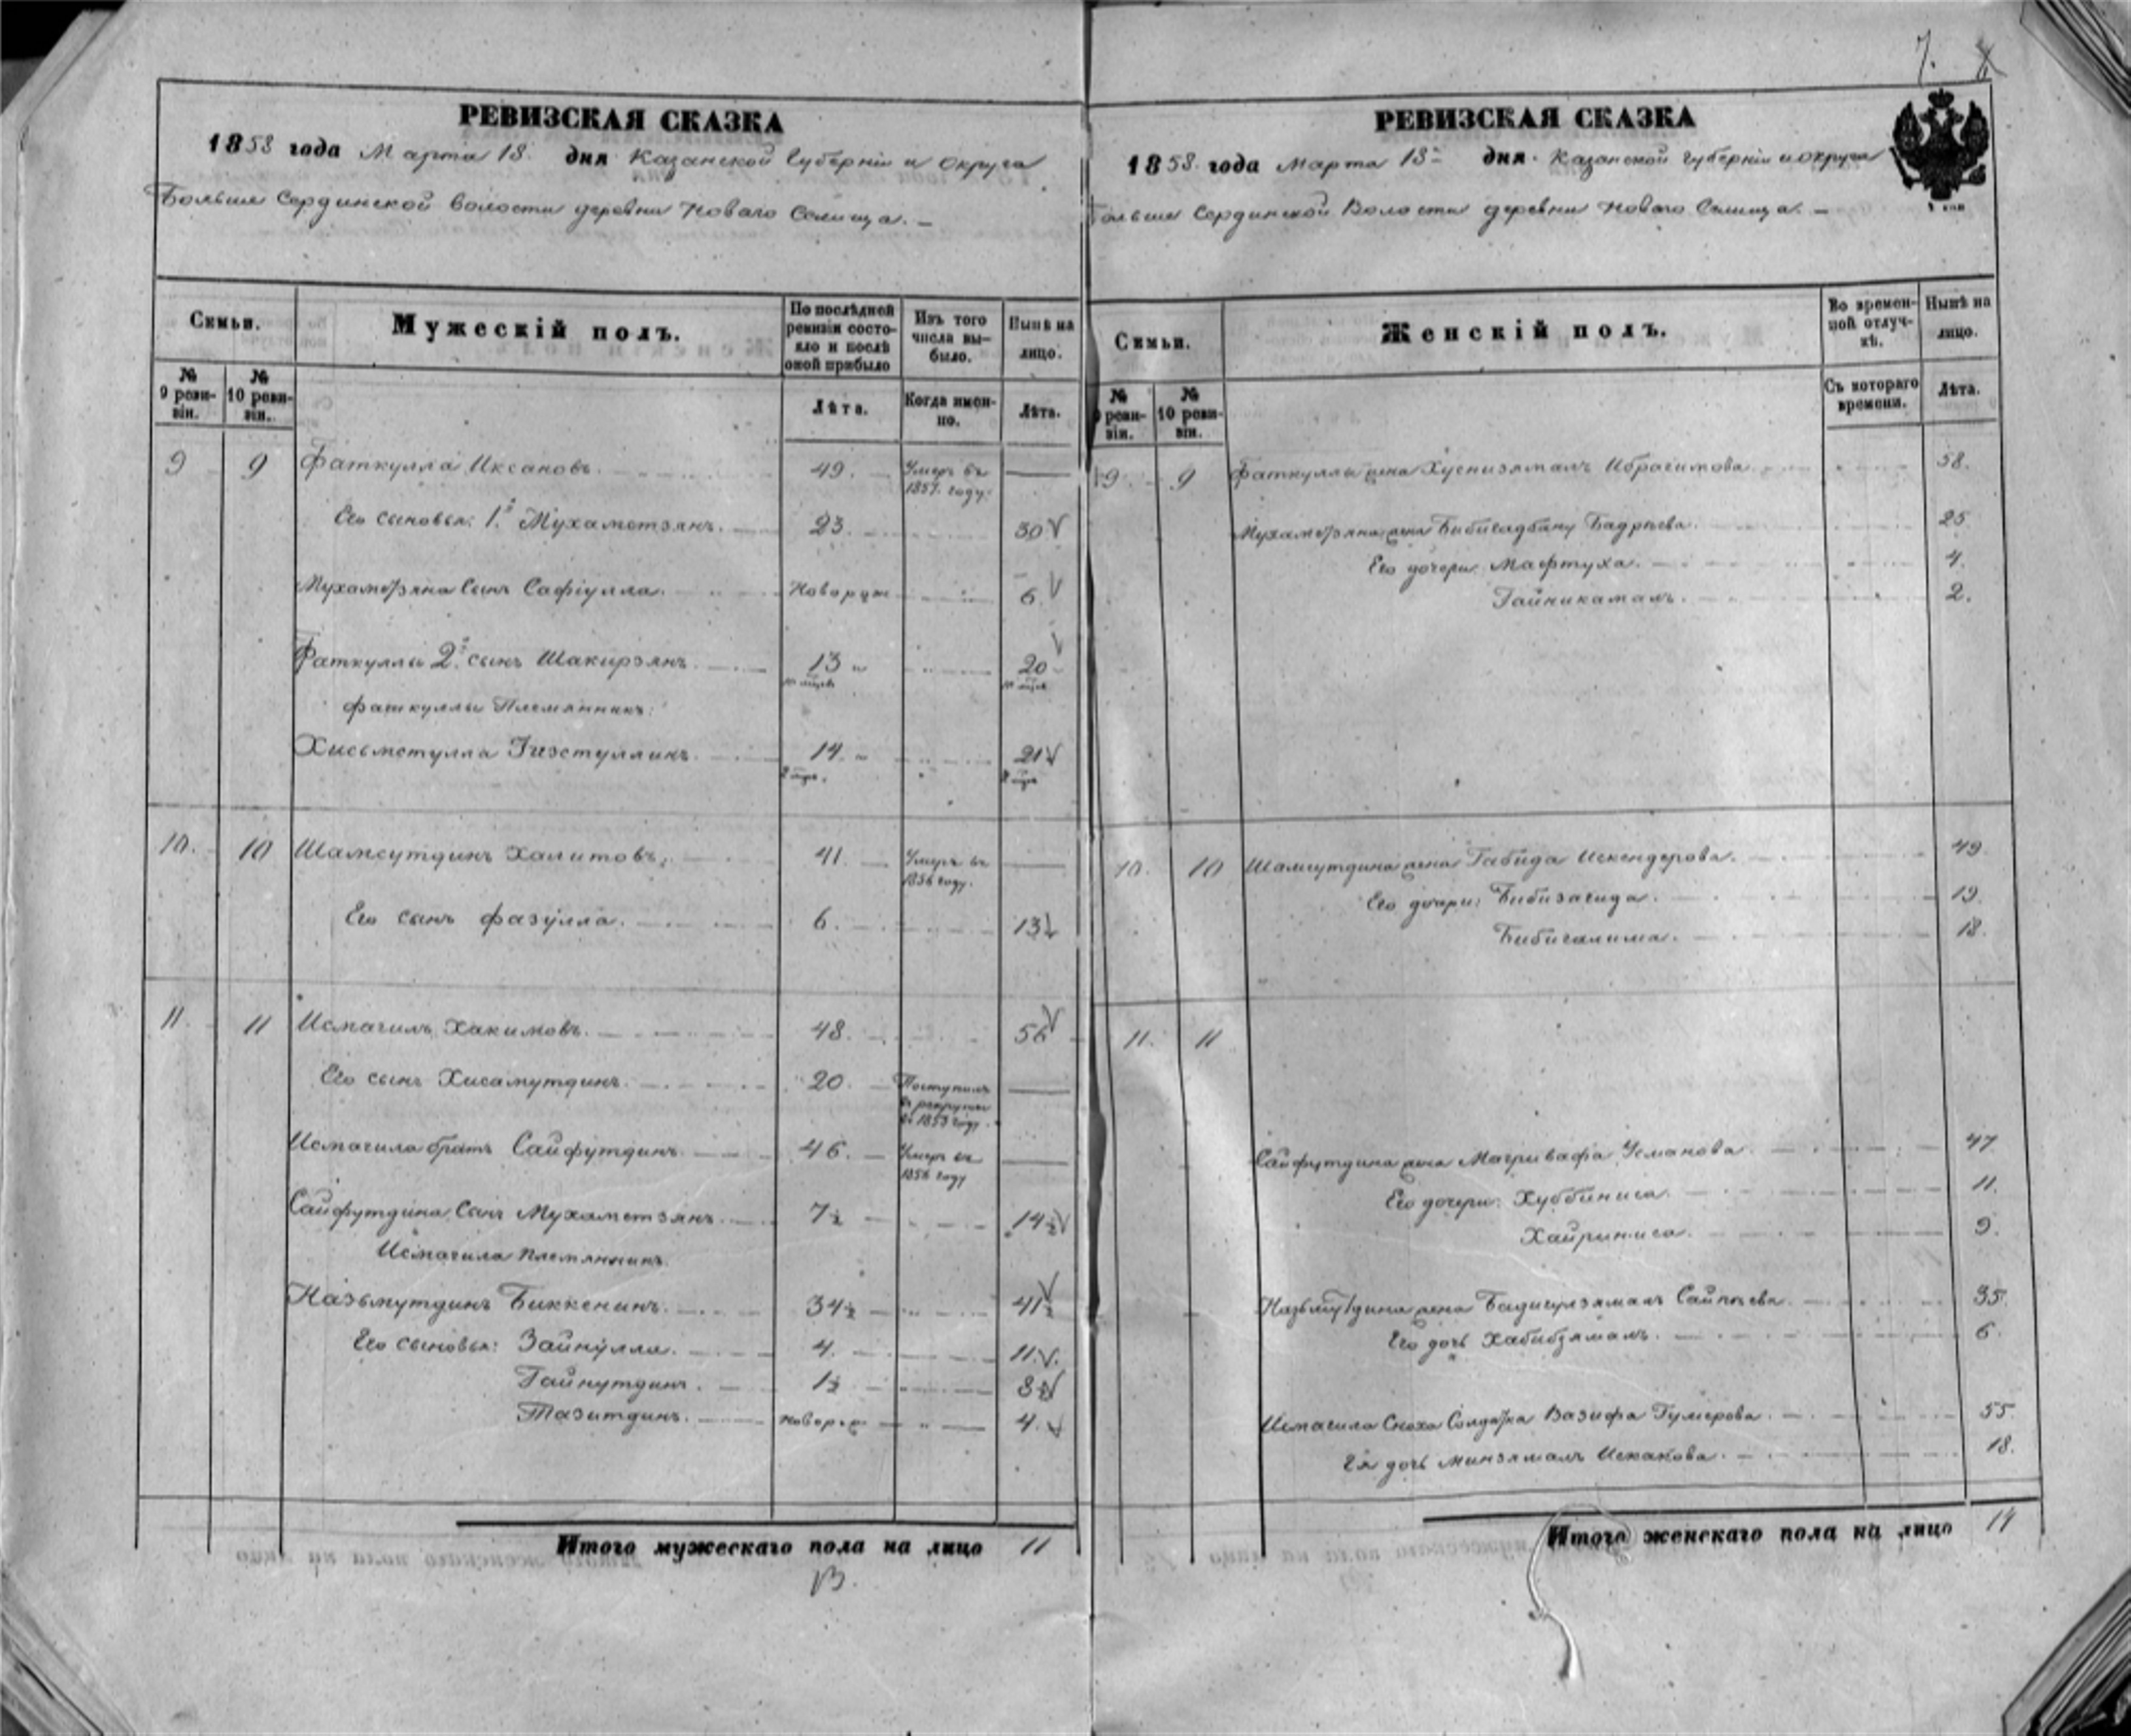 7.
РЕВИЗСКАЯ СКАЗКА
1858 года Марта 18. дня Казанской Губерніи и округа
Больше Сердинской волости деревни Новаго Селища. —
Семьи.
Мужескій полъ.
По послѣдней ревизіи состояло и послѣ оной прибыло
Изъ того числа выбыло.
Нынѣ на лицо.
№ 9 ревизіи.
№ 10 ревизіи.
Лѣта.
Когда именно.
Лѣта.
9 9 Фаткулла Иксановъ. 49. Умеръ въ 1857. году. —
Его сыновья: 1й Мухаметзянъ. 23. 30
Мухаметзяна Сынъ Сафіулла. Новорож 6.
Фаткуллы 2й сынъ Шакирзянъ 13 20
Фаткуллы Племянникъ:
Хисьметулла 14. 21
10. 10 Шамсутдинъ Халитовъ. 41. Умеръ въ 1856 году. —
Его сынъ Фазулла. 6. 13
11. 11 Исмагилъ Хакимовъ. 48. 56
Его сынъ Хисамутдинъ. 20. Поступилъ въ рекруты въ 1853 году. —
Исмагила братъ Сайфутдинъ 46. Умеръ въ 1856 году —
Сайфутдина Сынъ Мухаметзянъ. 7½ 14½
Исмагила племянникъ
Назьмутдинъ Биккенинъ. 34½ 41½
Его сыновья: Зайнулла. 4. 11.
Гайнутдинъ. 1½ 8½
Тазитдинъ. новорож 4.
Итого мужескаго пола на лицо 11
РЕВИЗСКАЯ СКАЗКА
1858. года Марта 18го дня. Казанской губерніи и округа
Больше Сердинской Волости деревни Новаго Селища. —
Семьи.
Женскій полъ.
Во временной отлучкѣ.
Нынѣ на лицо.
№ 9 ревизіи.
№ 10 ревизіи.
Съ котораго времени.
Лѣта.
9. 9 Фаткуллы жена Хуснизямалъ Ибрагимова 58.
Мухаметзяна жена Бадрѣева. 25
Его дочери: Мафтуха. 4.
Гайникамалъ. 2.
10. 10 Шамсутдина жена Габида Искендерова. 49
Его дочери: Бибизагида. 19.
Бибигалима. 18.
11. 11
Сайфутдина жена Усманова. 47
Его дочери: Хуббиниса. 11.
Хайриниса. 9.
Назьмутдина жена 35.
Его дочь Хабибзямалъ. 6.
Исмагила Сноха Солдатка Вазифа Гумерова. 55.
Ея дочь Минзямалъ Исхакова. 18.
Итого женскаго пола на лицо 14